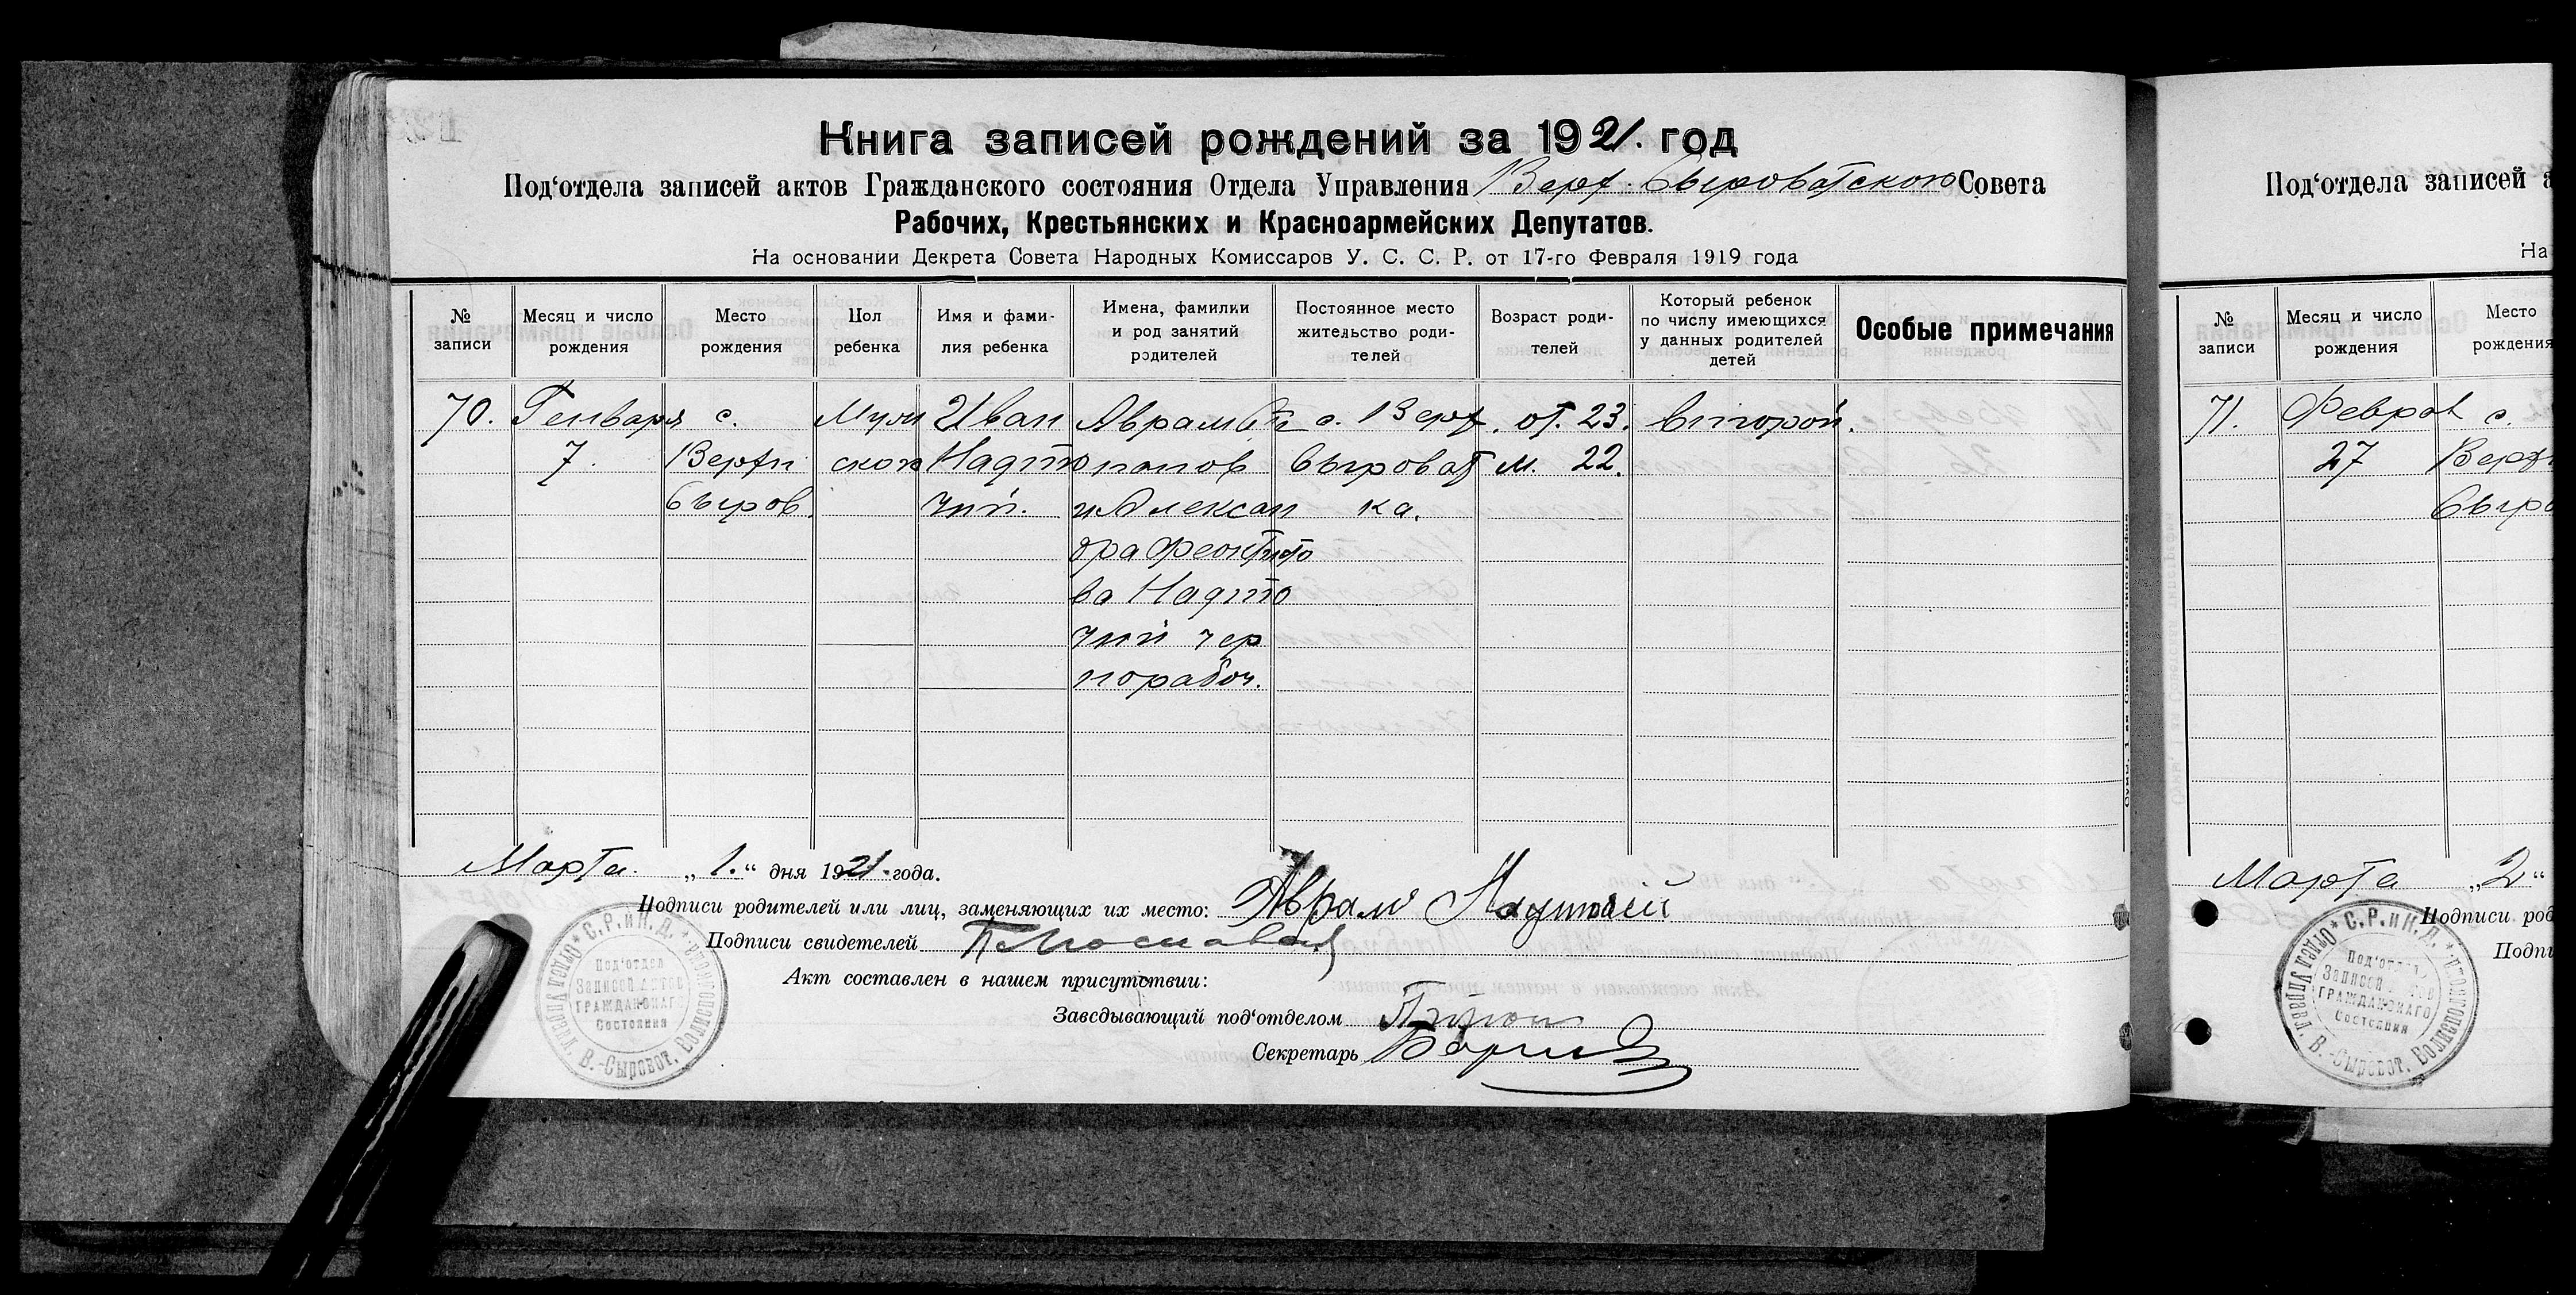 Книга записей рождений за 1921. год
Под‘отдела записей актов Гражданского состояния Отдела Управления Верх. Сыроватского Совета
Рабочих, Крестьянских и Красноармейских Депутатов.
На основании Декрета Совета Народных Комиссаров У. С. С. Р. от 17-го Февраля 1919 года
№ записи
Месяц и число рождения
Место рождения
Пол ребенка
Имя и фами-
лия ребенка
Имена, фамилии
и род занятий
родителей
Постоянное место
жительство роди-
телей
Возраст роди-
телей
Который ребенок
по числу имеющихся
у данных родителей
детей
Особые примечания
70. Генваря с. Муж Иван Аврам с. Верх. от. 23. второй.
7. Верхн ской Надто Сыроват м. 22.
Сыров. чий. и Алексан ка.
дра
ва Надто
чий чер
норабоч.
Марта. „1.“ дня 1921. года.
Подписи родителей или лиц, заменяющих их место: Аврам
Подписи свидетелей
Акт составлен в нашем присутствии:
Заведывающий под‘отделом
Секретарь
С.Р.иК.Д.
Отдел Управл. В.-Сыроват. Волисполкома
Под‘отдел
Записей Актов
Гражданскаго
Состояния
Под‘отдела записей а
На
№ записи
Месяц и число рождения
Место рождения
71. Феврал с.
27 Верхн
Сыро
Марта „2“
Подписи род
Подпи
С.Р.иК.Д.
Отдел Управл. В.-Сыроват. Волисполкома
Под‘отдел
Записей Актов
Гражданскаго
Состояния